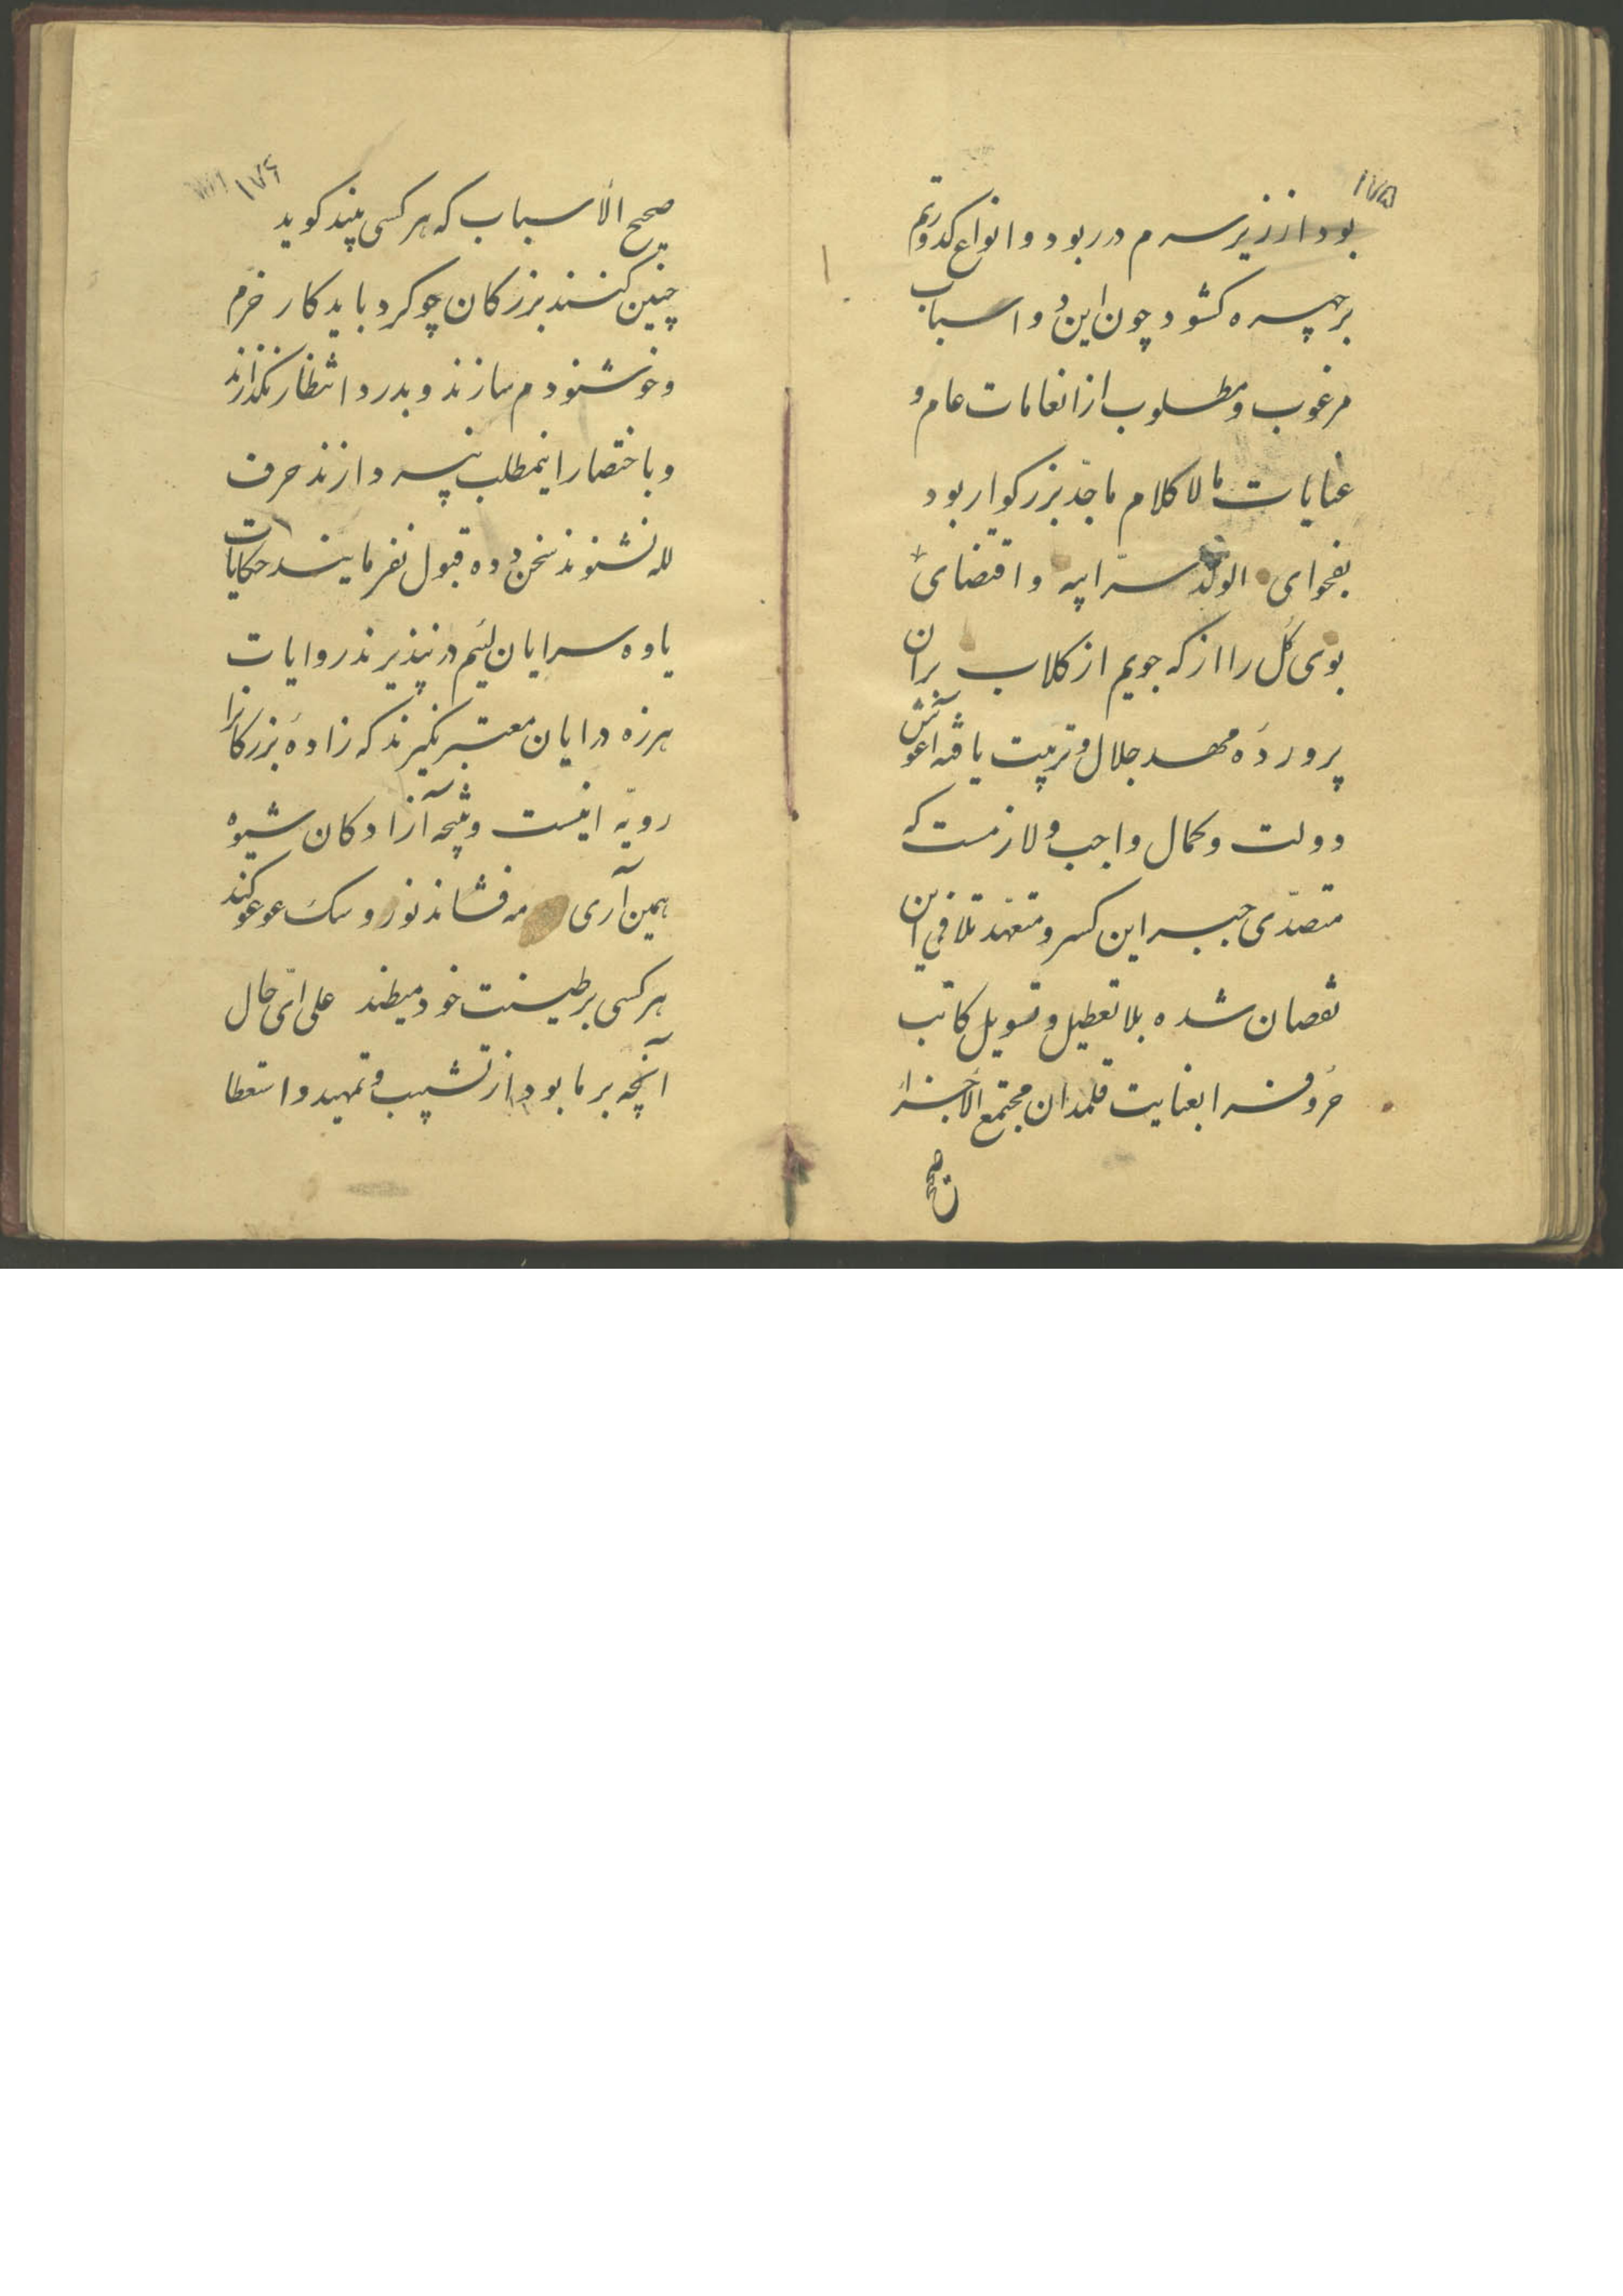 ۱۷۵
بود از زیر سرم در ربود و انواع کدورتم
بر چهره کشود چون این دو اسباب
مرغوب و مطلوب از انعامات عام و
عنایات مالا کلام ماجد بزرکوار بود
بفحوای الولد سرّ ابیه و اقتضای
بوی کل را از که جویم از کلاب بران
پروردهٔ مهد جلال و تربیت یافته اغوش
دولت و کمال واجب و لازمست که
متصدّی جبر این کسر و متعهّد تلافی این
نقصان شده بلا تعطیل و تسویل کاتب
حروف را بعنایت قلمدان مجتمع الاجزاء
صحیح
۱۷۶
صحیح الاسباب که هر کسی بیند کوید
چنین کنند بزرکان چو کرد باید کار خرم
و خوشنودم سازند و بدرد انتظار نکذارند
و باختصار اینمطلب بپردازند حرف
لله نشنوند سخن دده قبول نفرمایند حکایات
یاوه سرایان لئیم در نپذیرند روایات
هرزه درایان معتبر نکیرند که زادهٔ بزرکانرا
رویّه انیست و نتیجه آزادکان شیوه
همین آری مه فشاند نور و سک عوعو کند
هر کسی بر طینت خود میطند علی ایّ حال
آنچه بر ما بود از تشبیب و تمهید و استعطا